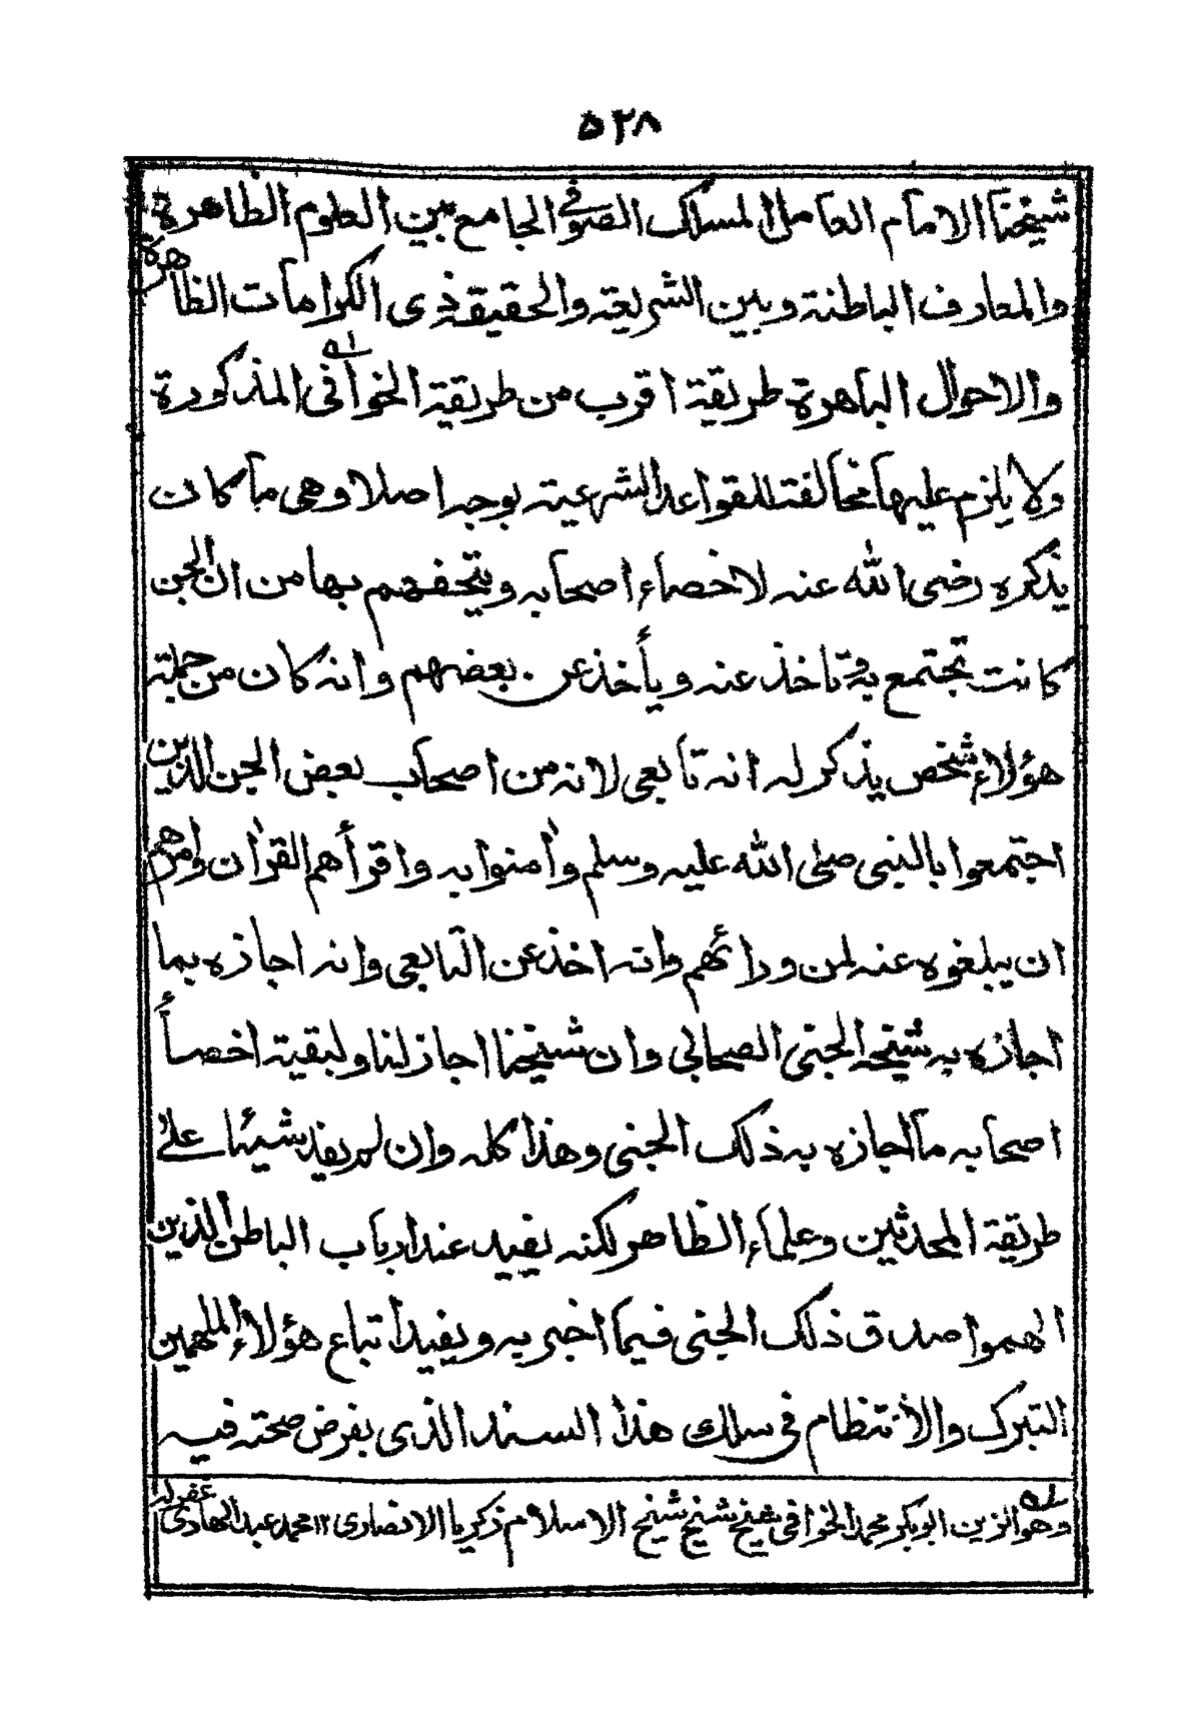 ٥٢٨
شيخنا الامام العامل المسلك الصوفي الجامع بين العلوم الظاهرة
والمعارف الباطنة وبين الشريعة والحقيقة ذى الكرامات الظاهرة
والاحوال الباهرة طريقة اقرب من طريقة الخوافى المذكورة
ولا يلزم عليها مخالفة للقواعد الشرعية بوجه اصلا وهى ما كان
يذكره رضى الله عنه لاخصاء اصحابه ويتحفهم بها من ان الجن
كانت تجتمع به وتاخذ عنه ويأخذ عن بعضهم وانه كان من جملة
هؤلاء شخص يذكر له انه تابعى لانه من اصحاب بعض الجن الذين
اجتمعوا بالنبى صلى الله عليه وسلم وأمنوا به واقرأهم القرأن وامرهم
ان يبلغوه عنه لمن ورائهم وانه اخذ عن التابعى وانه اجازه بما
اجازه به شيخه الجنى الصحابى وان شيخنا اجاز لنا ولبقية اخصأ
اصحابه ما اجازه به ذلك الجنى وهذا كله وان لم يفد شيئا على
طريقة المحدثين وعلماء الظاهر لكنه يفيد عند ارباب الباطن الذين
الهموا صدق ذلك الجنى فيما اخبر به ويفيد اتباع هؤلاء الملهمين
التبرك والانتظام فى سلك هذا السند الذى بفرض صحته فيه
وهو الزين ابو بكر محمد الخوافى شيخ شيخ شيخ الاسلام زكريا الانصارى ١٢ محمد عبد الهادى غفر له